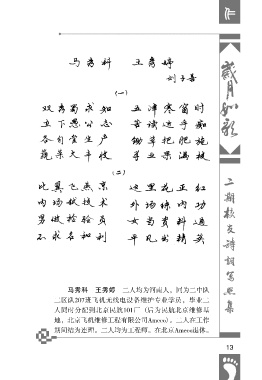 马秀科 王秀婷
刘子善
(一)
双秀函求知 五津寒窗时
立下愚公志 苦读近乎痴
各自食生产 锄草把肥施
蔬菜大丰收 学业果满枝
(二)
比翼飞燕京 这里花正红
内场试技术 外场练内功
男做检验员 女当资料通
不求名和利 平凡出精英
马秀科 王秀婷 二人均为河南人,同为二中队
二区队207班飞机无线电设备维护专业学员,毕业二
人同时分配到北京民航101厂(后为民航北京维修基
地,北京飞机维修工程有限公司Ameco)。二人在工作
期间结为连理。二人均为工程师。在北京Ameco退休。
岁月如歌
二期校友诗词写照集
13